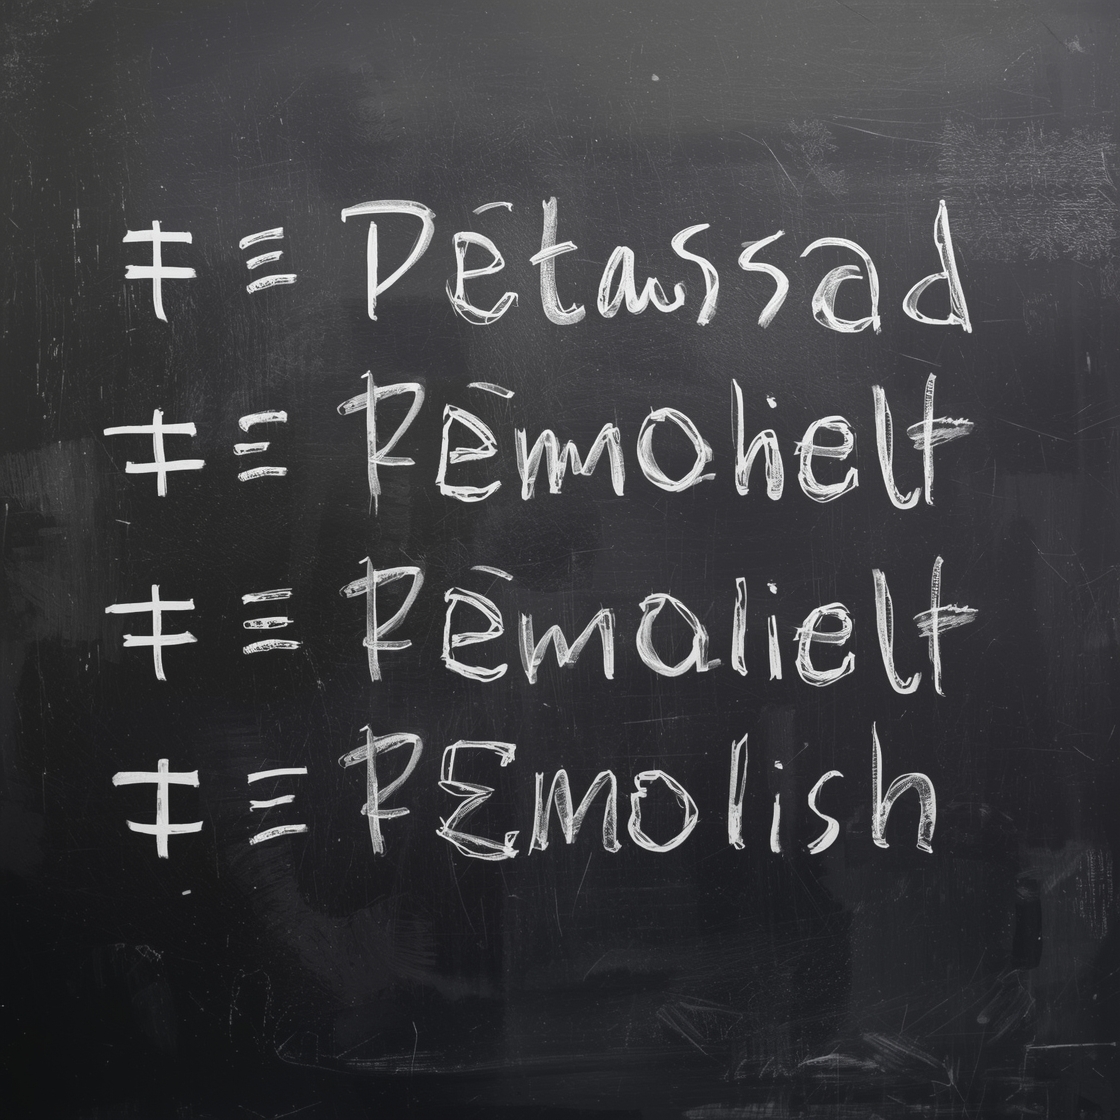 ǂ ≡ Pētassad
ǂ ≡ Pèmohelt
ǂ ≡ Pèmalielt
ǂ ≡ PEmolish